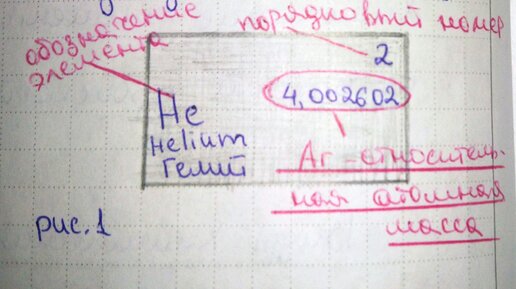 обозначение
элемента
порядковый номер
2
4,002602
He
Helium
Гелий
Ar - относитель-
ная атомная
масса
рис. 1